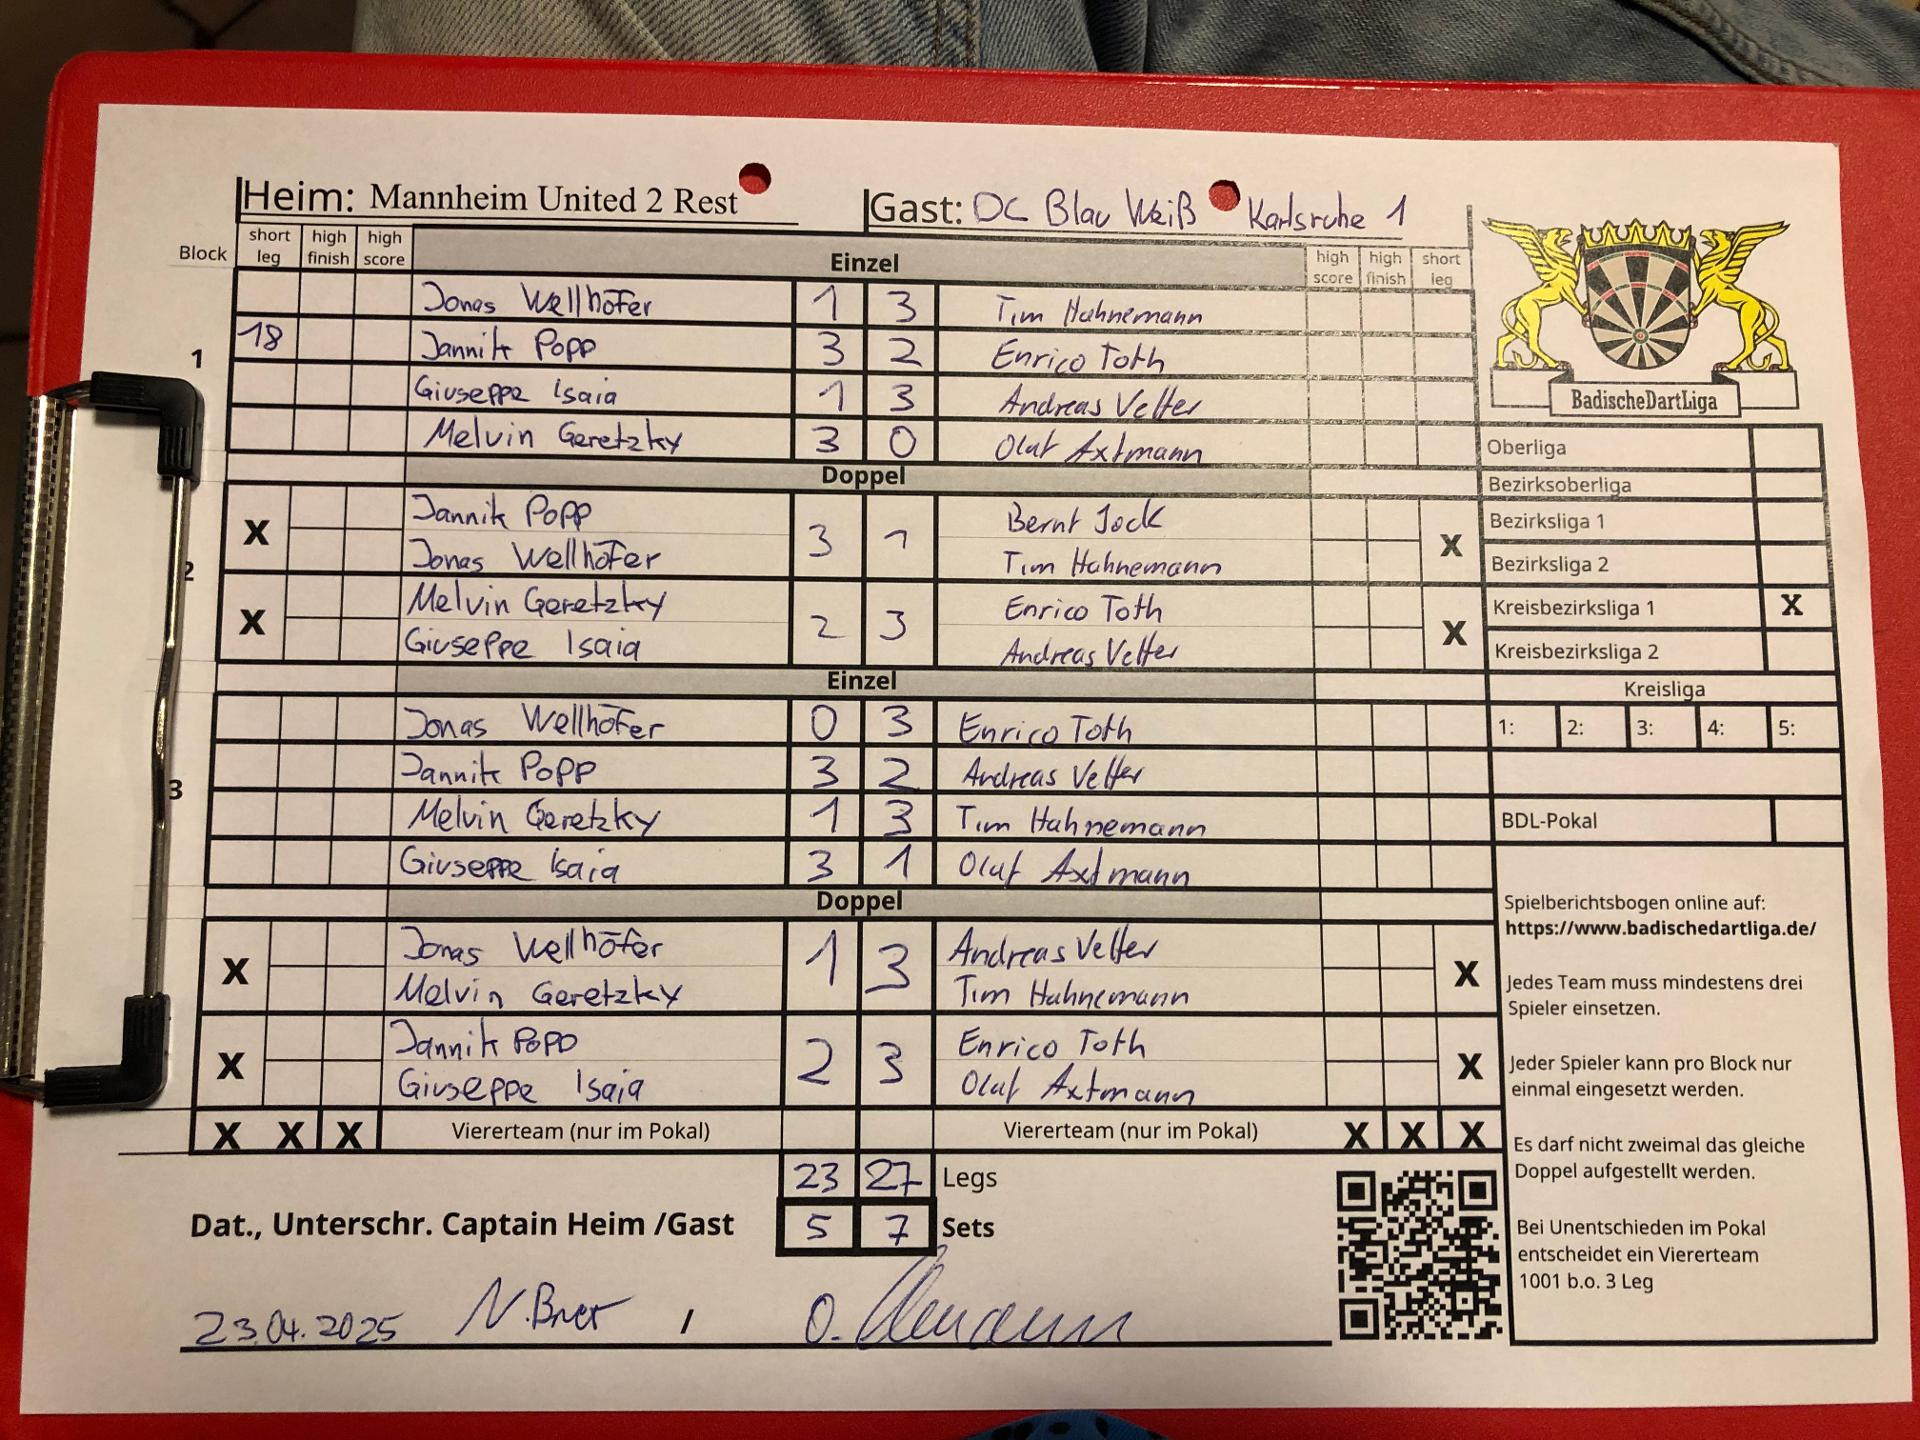 Heim: Mannheim United 2 Rest Gast: DC Blau Weiß Karlsruhe 1
Block short leg high finish high score Einzel high score high finish short leg
Jonas Wellhöfer 1 3 Tim Hahnemann
1 18 Jannik Popp 3 2 Enrico Toth
Giuseppe Isaia 1 3 Andreas Vetter
Melvin Geretzky 3 0 Olaf Axtmann
Doppel
X Jannik Popp 3 1 Bernt Jock X
Jonas Wellhöfer Tim Hahnemann
2
X Melvin Geretzky 2 3 Enrico Toth X
Giuseppe Isaia Andreas Vetter
Einzel
Jonas Wellhöfer 0 3 Enrico Toth
Jannik Popp 3 2 Andreas Vetter
3
Melvin Geretzky 1 3 Tim Hahnemann
Giuseppe Isaia 3 1 Olaf Axtmann
Doppel
X Jonas Wellhöfer 1 3 Andreas Vetter X
Melvin Geretzky Tim Hahnemann
X Jannik Popp 2 3 Enrico Toth X
Giuseppe Isaia Olaf Axtmann
X X X Viererteam (nur im Pokal) Viererteam (nur im Pokal) X X X
23 27 Legs
Dat., Unterschr. Captain Heim /Gast 5 7 Sets
23.04.2025 / O.
BadischeDartLiga
Oberliga
Bezirksoberliga
Bezirksliga 1
Bezirksliga 2
Kreisbezirksliga 1 X
Kreisbezirksliga 2
Kreisliga
1: 2: 3: 4: 5:
BDL-Pokal
Spielberichtsbogen online auf:
https://www.badischedartliga.de/
Jedes Team muss mindestens drei
Spieler einsetzen.
Jeder Spieler kann pro Block nur
einmal eingesetzt werden.
Es darf nicht zweimal das gleiche
Doppel aufgestellt werden.
Bei Unentschieden im Pokal
entscheidet ein Viererteam
1001 b.o. 3 Leg